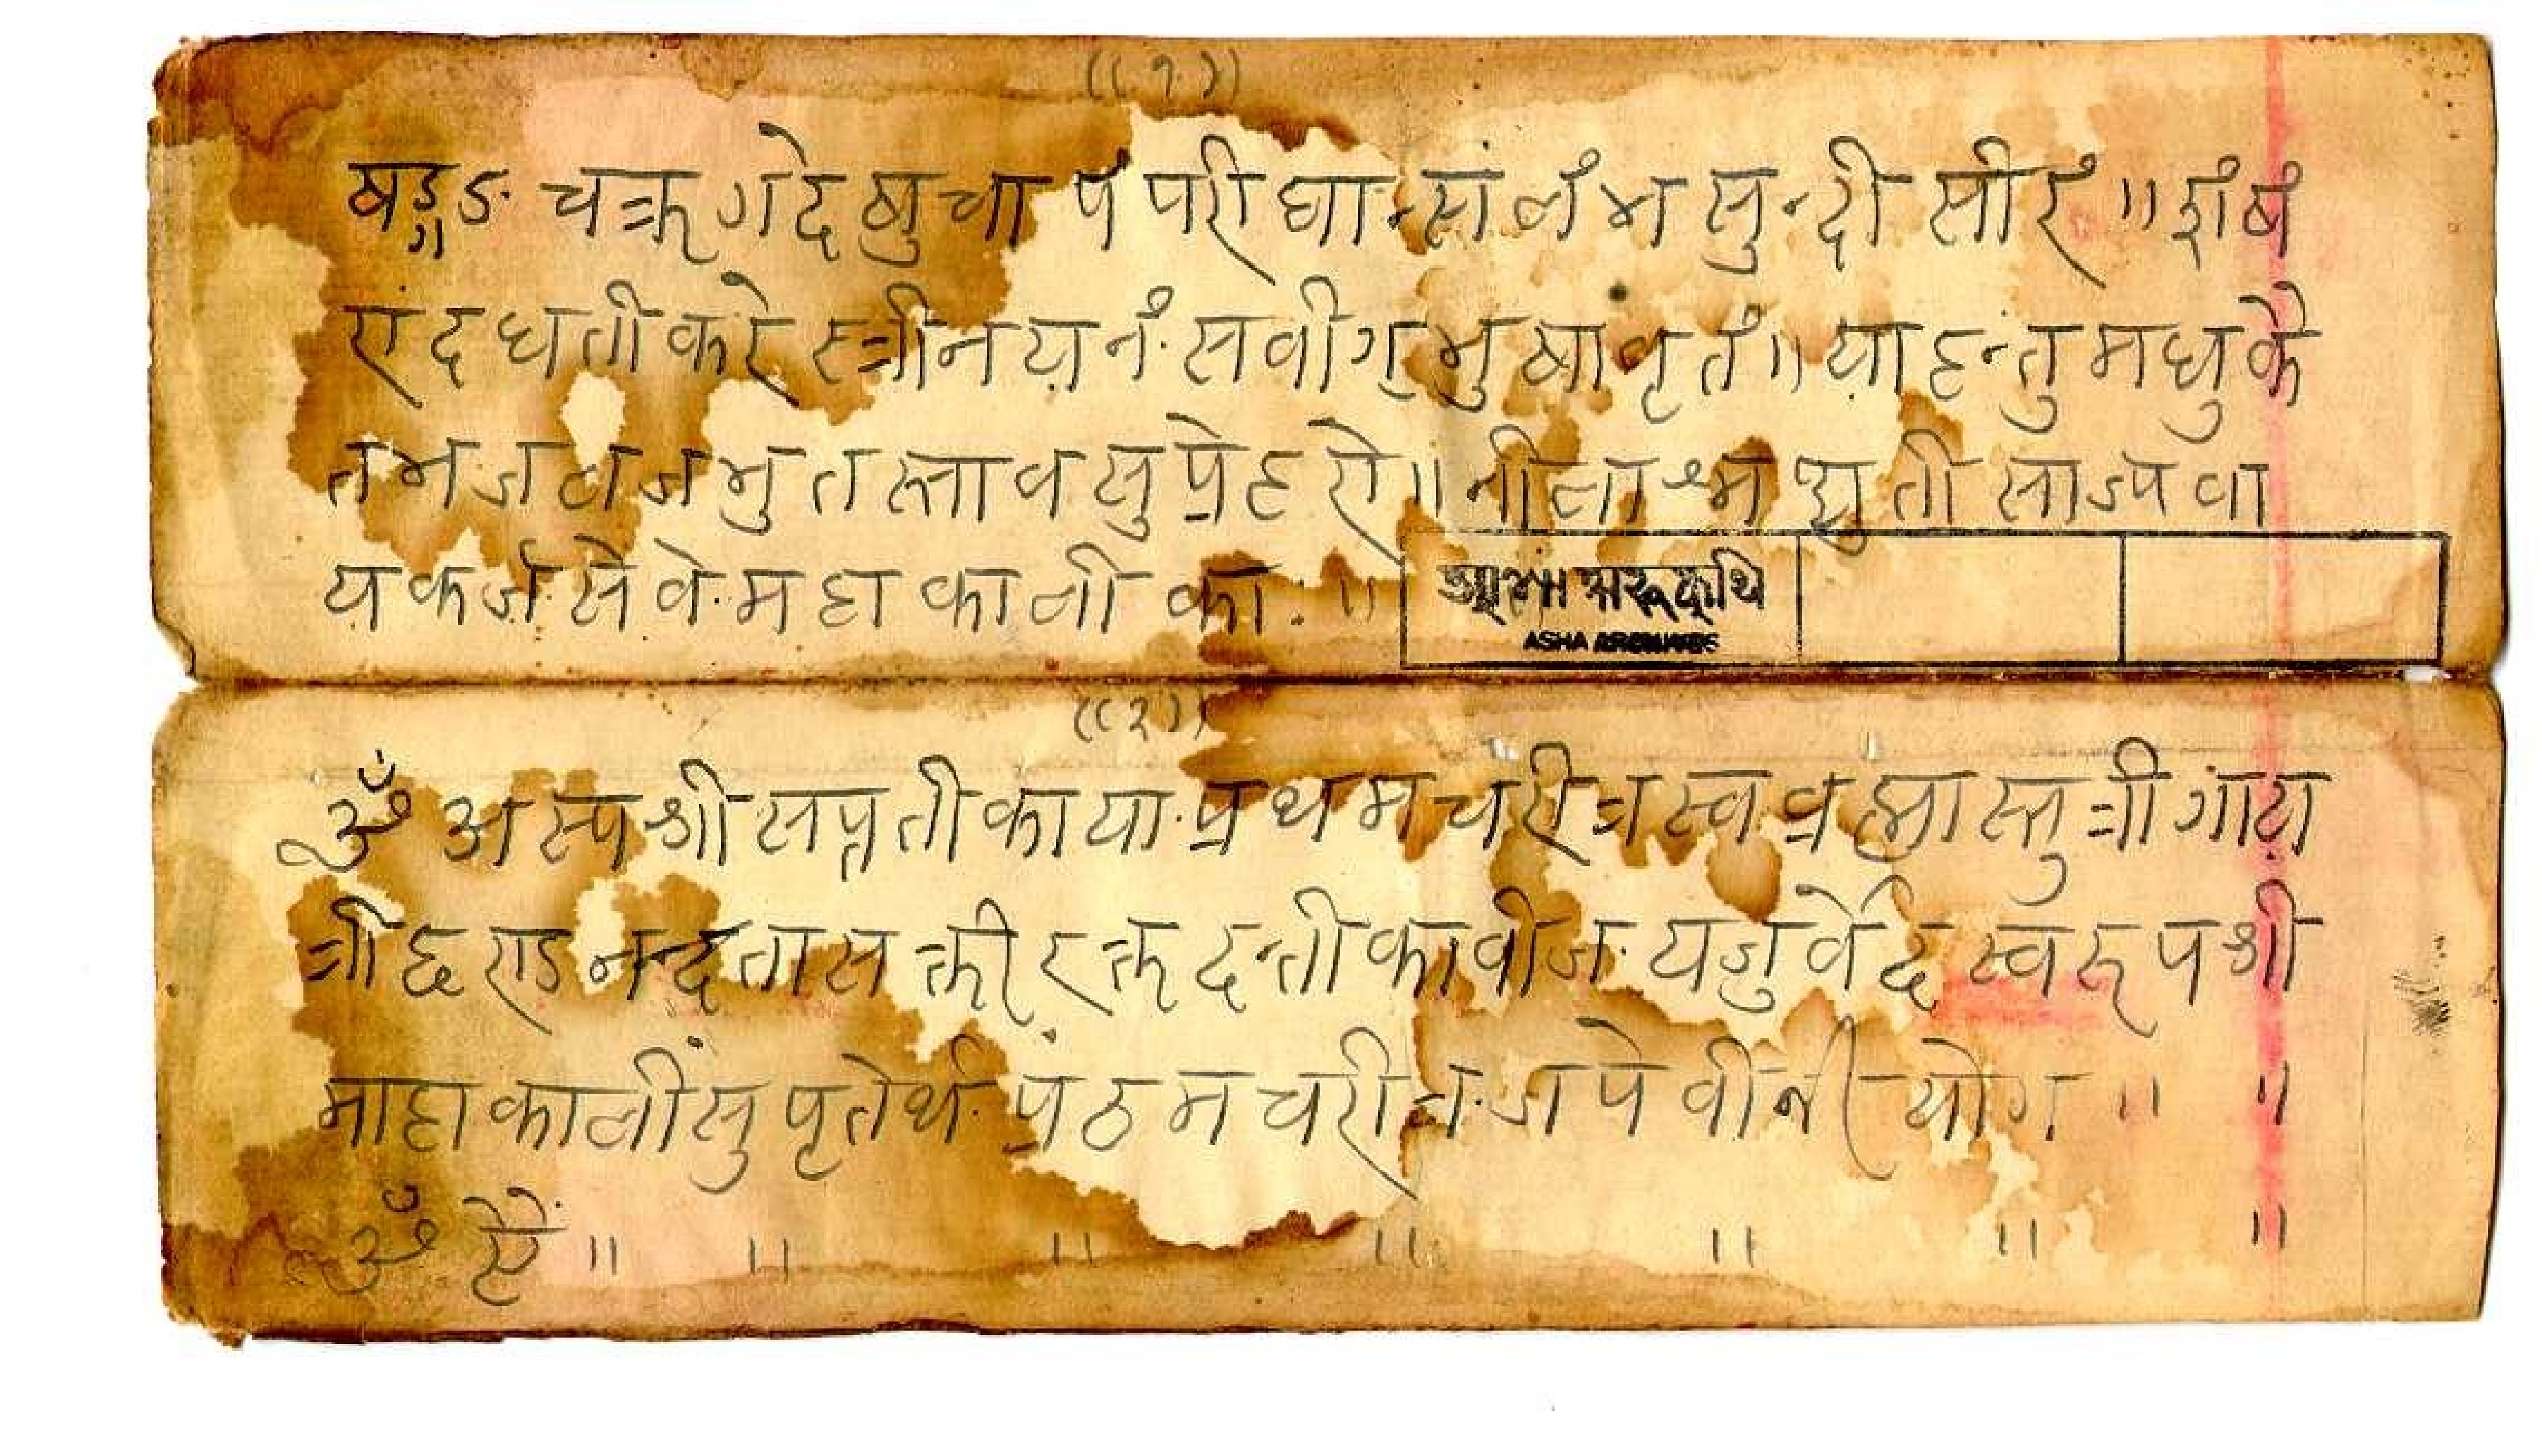 ((१))
षड्गङ चक्र गदेषुचा पं परी घा सुलं भ सुन्दी सीरं ॥ शंष
एंदधती करे स्त्रीनयनं सर्वांग भुषावृतं ॥ याहन्तु मधुकै
तभ जलजभुतस्ताव सुप्रेहरो ॥ नीलाश्म द्युती साज्यवा
यकजं सेवे महाकाली का ॥
आशा सफूकुथि
ASHA ARCHIVES
((२))
ॐ अस्य श्री सप्नती काया प्रथम चरीत्रस्व ब्रह्मास्तुत्री गाय
त्री छएड नन्दतास क्ती रक्तदन्तीका वीज यजुर्वेद स्वरूप श्री
माहाकालीं सुपृतेर्थ प्रंठम चरीत्र जपे वीनीयोग ॥ ॥
ॐ ऐं ॥ ॥ ॥ ॥ ॥ ॥ ॥